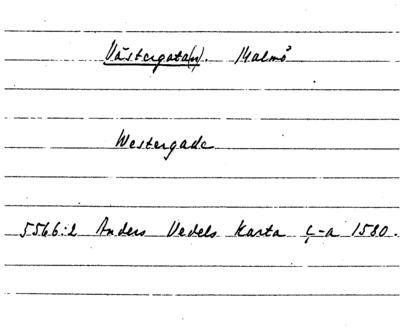 Västergata(n). Malmö
Westergade
5566:2 Anders Vedels Karta c-a 1580.